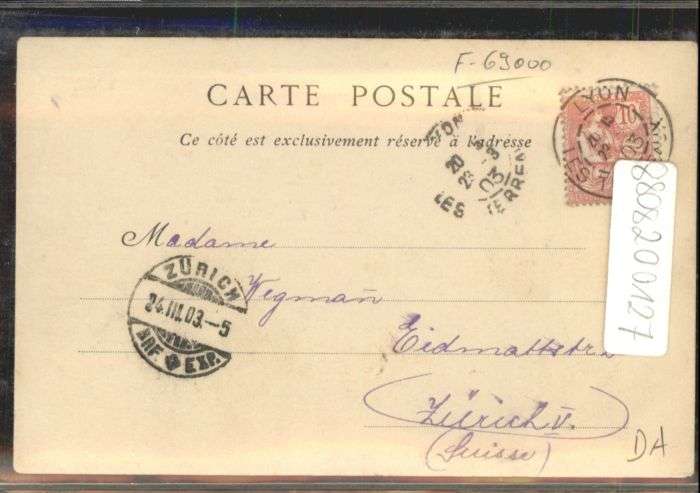 F-69000
CARTE POSTALE
Ce côté est exclusivement réservé à l'adresse
LYON
10
LES
03
LYON
20
23
03
LES TERREAUX
Madame
Wegmann
Eidmattstr
Zürich V.
(Suisse)
ZÜRICH
24.III.03.-5
BRF. EXP.
8808200127
DA